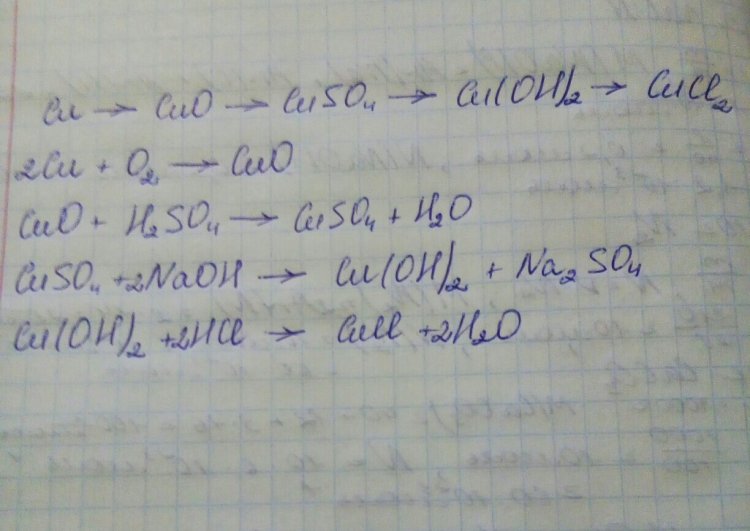 Cu → CuO → CuSO₄ → Cu(OH)₂ → CuCl₂
2Cu + O₂ → CuO
CuO + H₂SO₄ → CuSO₄ + H₂O
CuSO₄ + 2NaOH → Cu(OH)₂ + Na₂SO₄
Cu(OH)₂ + 2HCl → CuCl + 2H₂O